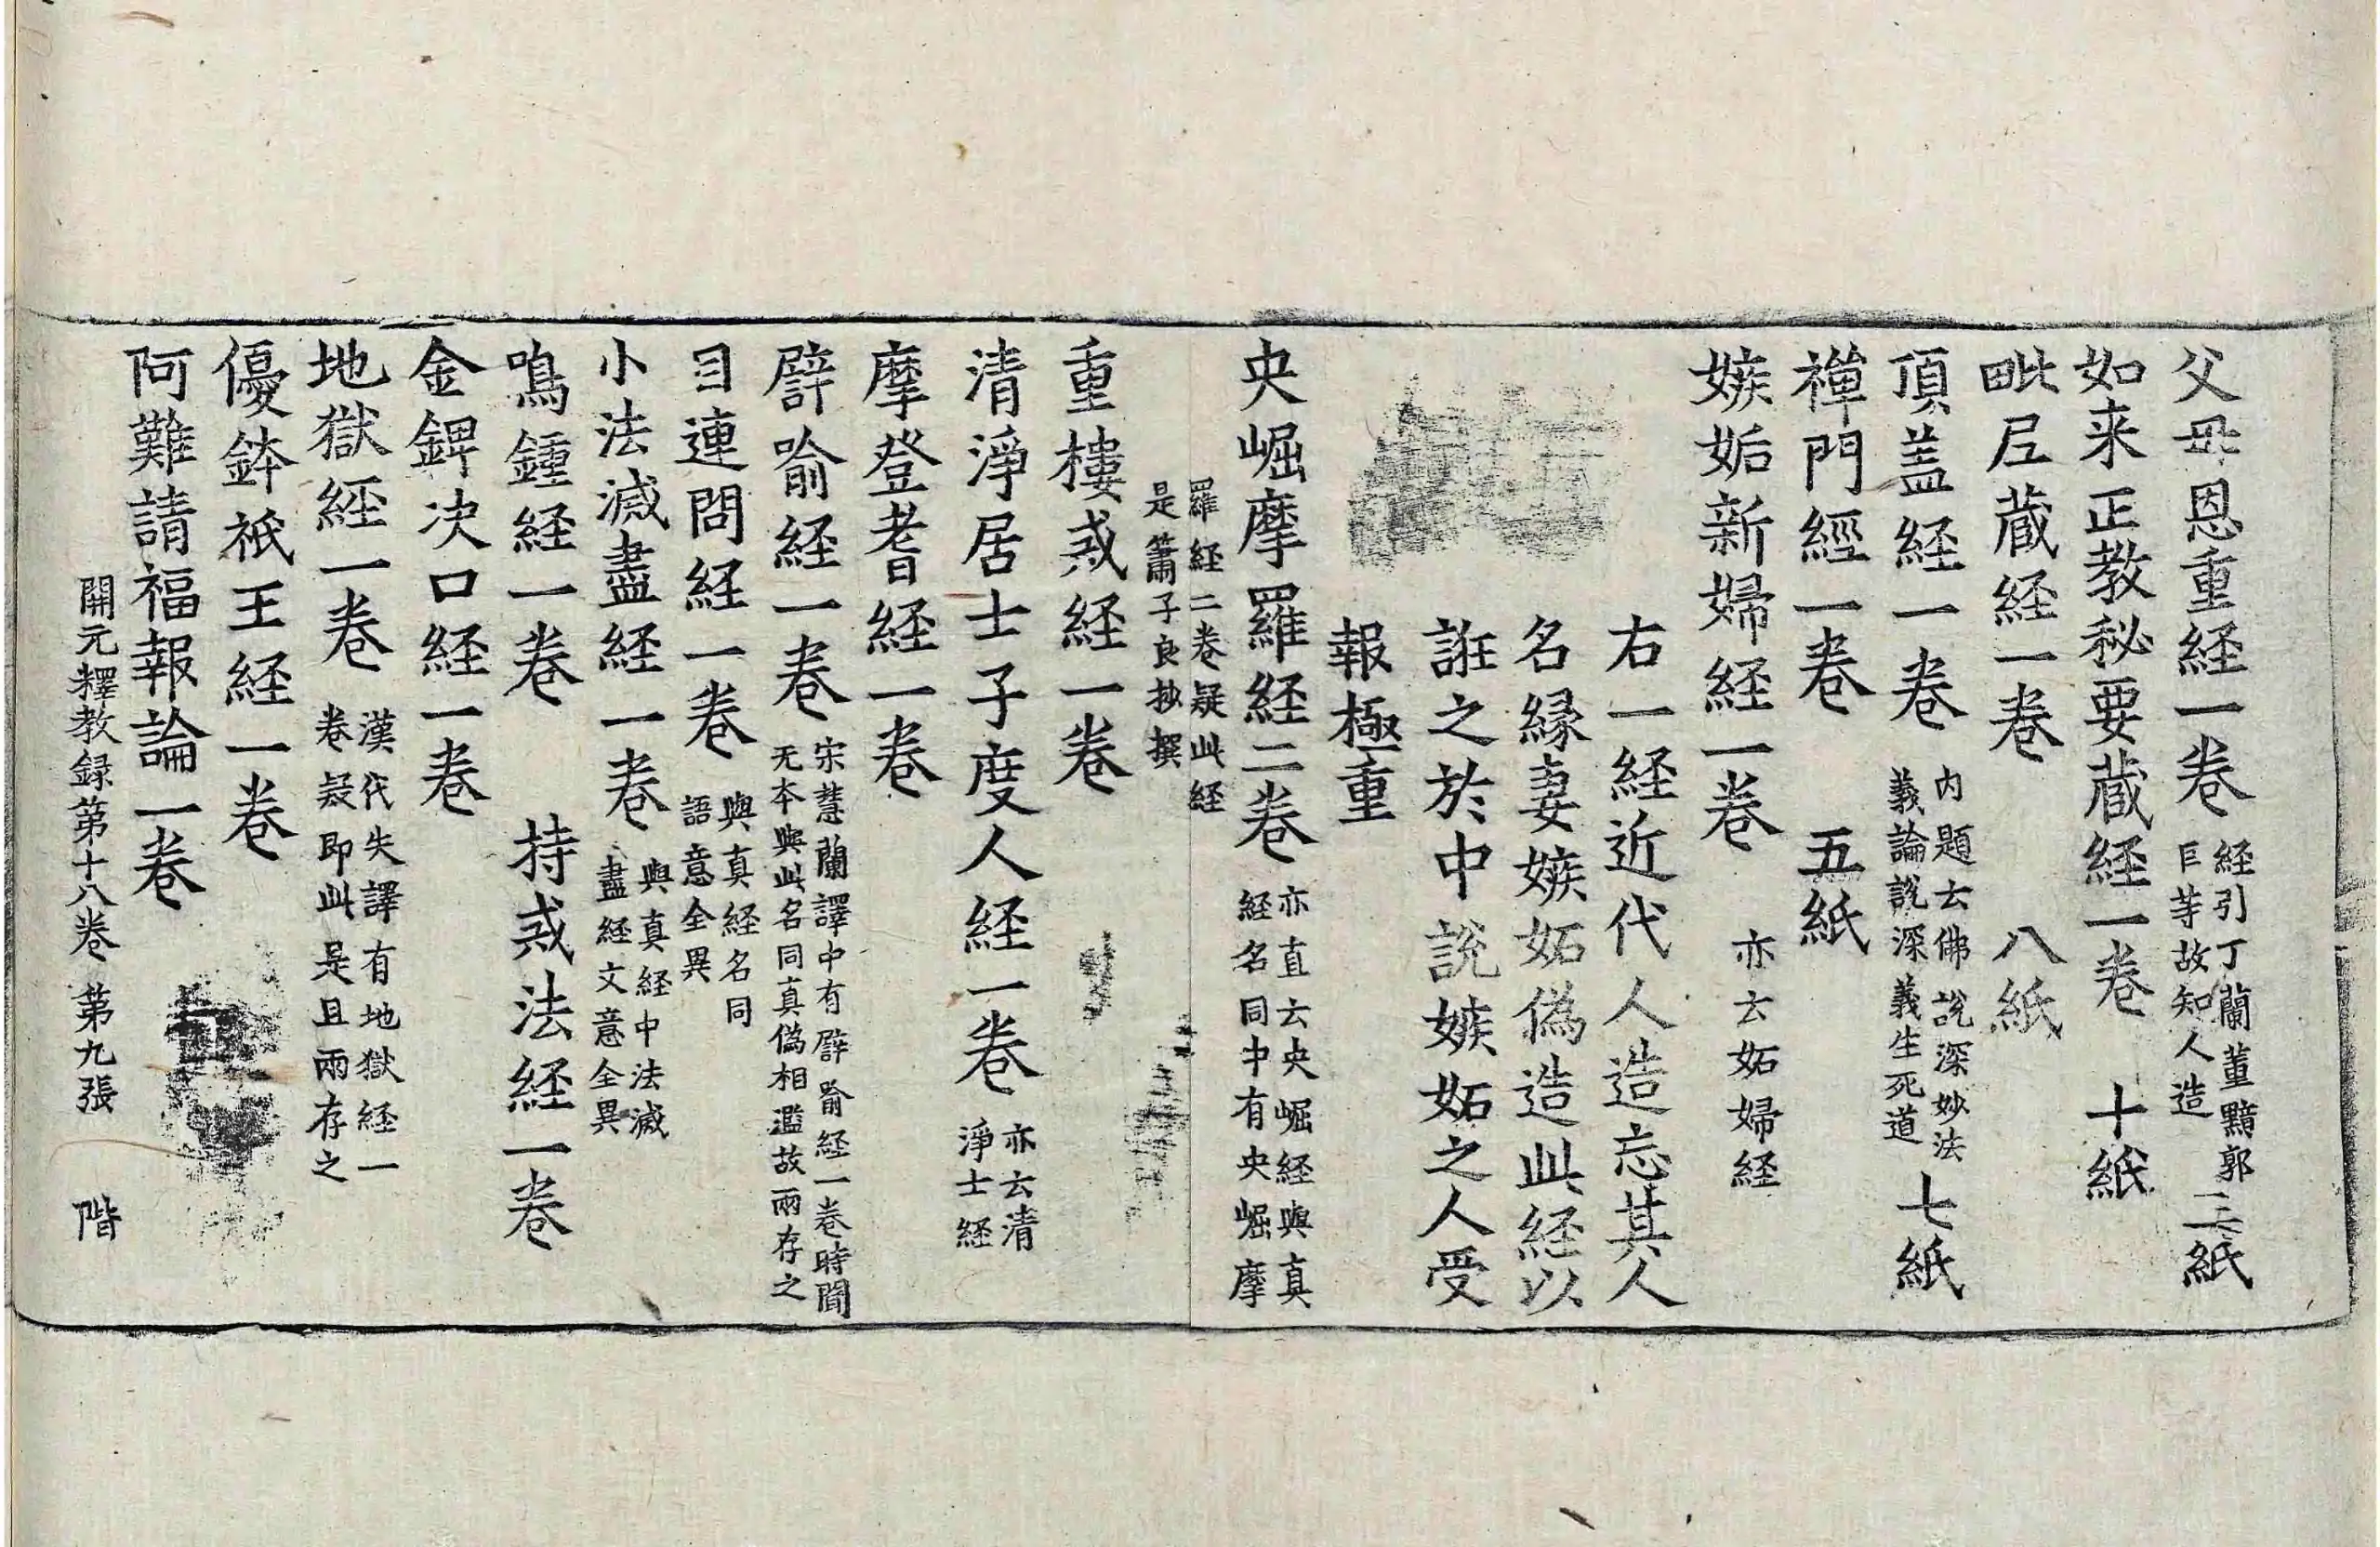 父母恩重経一卷 経引丁蘭董黯郭巨等故知人造 三紙
如来正教秘要蔵経一卷 十紙
毗尼蔵経一卷 八紙
頂盖経一卷 内題云佛說深妙法義論說深義生死道 七紙
禅門經一卷 五紙
嫉妬新婦経一卷 亦云妬婦経
右一経近代人造忘其人
名縁妻嫉妬偽造此経以
誑之於中說嫉妬之人受
報極重
央崛摩羅経二卷 亦直云央崛経與真経名同中有央崛摩
羅経二卷疑此経是簫子良抄撰
重樓戒経一卷
清淨居士子度人経一卷 亦云清淨士経
摩登耆経一卷
譬喻経一卷 宋慧蘭譯中有譬喻経一卷時聞无本與此名同真偽相濫故兩存之
目連問経一卷 與真経名同語意全異
小法滅盡経一卷 與真経中法滅盡経文意全異
鳴鍾経一卷 持戒法経一卷
金錍决口経一卷
地獄経一卷 漢代失譯有地獄経一卷疑即此是且兩存之
優鉢祇王経一卷
阿難請福報論一卷
開元釋教録第十八卷 第九張 階